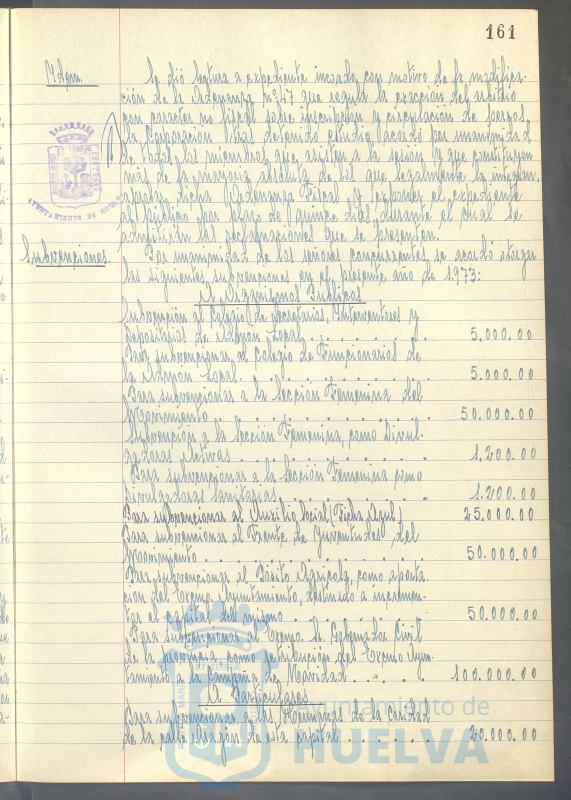 161
Idem.
Se dió lectura a expediente incoado con motivo de la modifica-
ción de la Ordenanza nº 47 que regula la exacción del arbitrio
con caracter no fiscal sobre inscripción y circulación de perros.
La Corporación tras detenido estudio, acordó por unanimidad
de todos los miembros que asisten a la sesión y que constituyen
más de la mayoría absoluta de los que legalmente la integran,
aprobar dicha Ordenanza Fiscal y exponer el expediente
al público por plazo de quince días, durante el cual se
admitirán las reclamaciones que se presenten.
AYUNTAMIENTO DE HUELVA
Subvenciones.
Por unanimidad de los señores concurrentes se acordó otorgar
las siguientes subvenciones en el presente año de 1.973:
A Organismos Públicos
Subvención al Colegio de Secretarios, Interventores y
Depositarios de Admon Local . . . . . . . . . 5.000.00
Para subvencionar al Colegio de Funcionarios de
la Admon Local. . . . . . . . . . . . 5.000.00
Para subvencionar a la Sección Femenina del
Movimiento . . . . . . . . . . . . 50.000.00
Subvención a la Sección Femenina, como Divul-
gadoras . . . . . . . . . . . 1.200.00
Para subvencionar a la Sección Femenina como
Divulgadoras sanitarias . . . . . . . . . 1.200.00
Para subvencionar al Auxilio Social (Ficha Azul) 25.000.00
Para subvencionar al Frente de Juventudes del
Movimiento. . . . . . . . . . . . 50.000.00
Para subvencionar al Pósito Agricola, como aporta-
ción del Excmo Ayuntamiento, destinado a incremen-
tar el capital del mismo . . . . . . . . . 50.000.00
Para subvencionar al Excmo. Sr. Gobernador Civil
de la provincia, como contribución del Excmo Ayun-
tamiento a la Campaña de Navidad . . . . 100.000.00
A Particulares
Para subvencionar a las Hermanas de la caridad
de la calle Aragón de esta capital . . . . . . 20.000.00
Ayuntamiento de
HUELVA